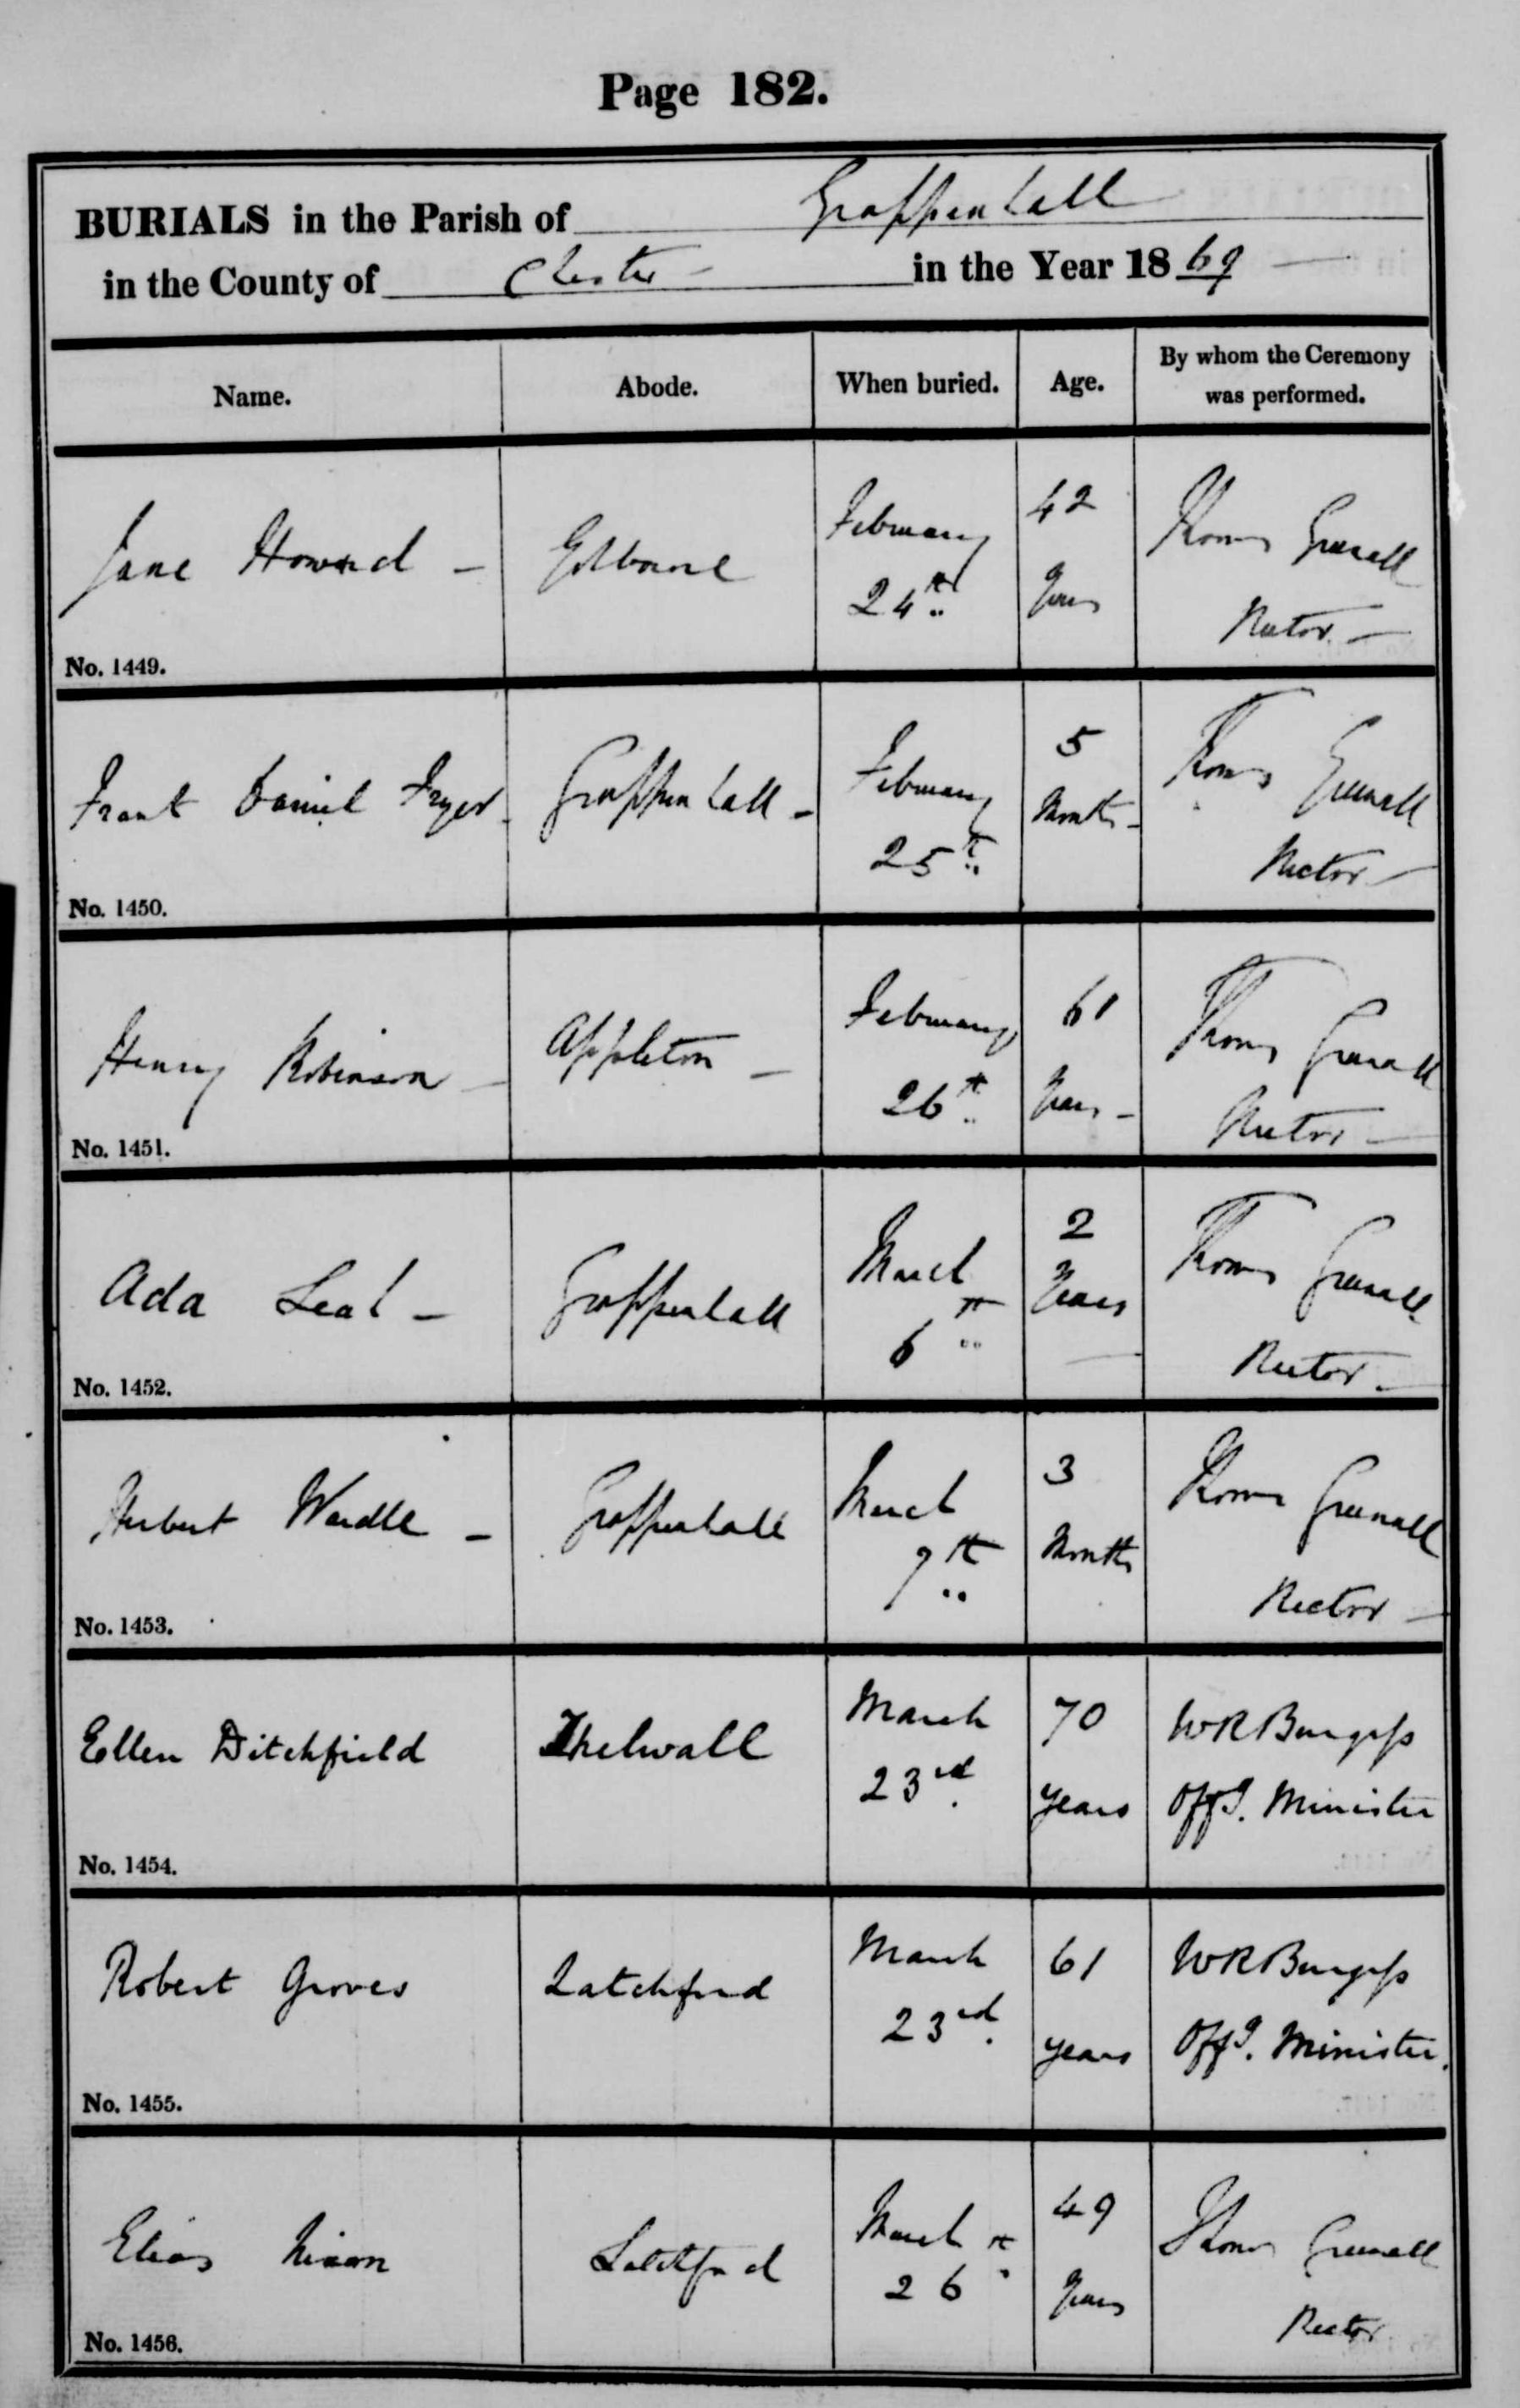 Page 182.
BURIALS in the Parish of Grappenhall
in the County of Chester - in the Year 18 69 -
Name. Abode. When buried. Age. By whom the Ceremony was performed.
Jane Howard -
No. 1449.
February
24th
42
Years
Thomas Greenall
Rector -
Frank Daniel Fryer -
No. 1450.
Grappenhall -
February
25th
5
Months -
Thomas Greenall
Rector -
Henry Robinson -
No. 1451.
Appleton -
February
26th
61
Years -
Thomas Greenall
Rector -
Ada Leah -
No. 1452.
Grappenhall
March
6th
2
Years
-
Thomas Greenall
Rector -
Herbert Wardle -
No. 1453.
Grappenhall
March
7th
3
Months
Thomas Greenall
Rector -
Ellen Ditchfield
No. 1454.
Thelwall
March
23rd.
70
years
W R Burgess
Offg. Minister
Robert Groves
No. 1455.
Latchford
March
23rd.
61
years
W R Burgess
Offg. Minister.
Elias Nixon
No. 1456.
Latchford
March
26th
49
Years
Thomas Greenall
Rector